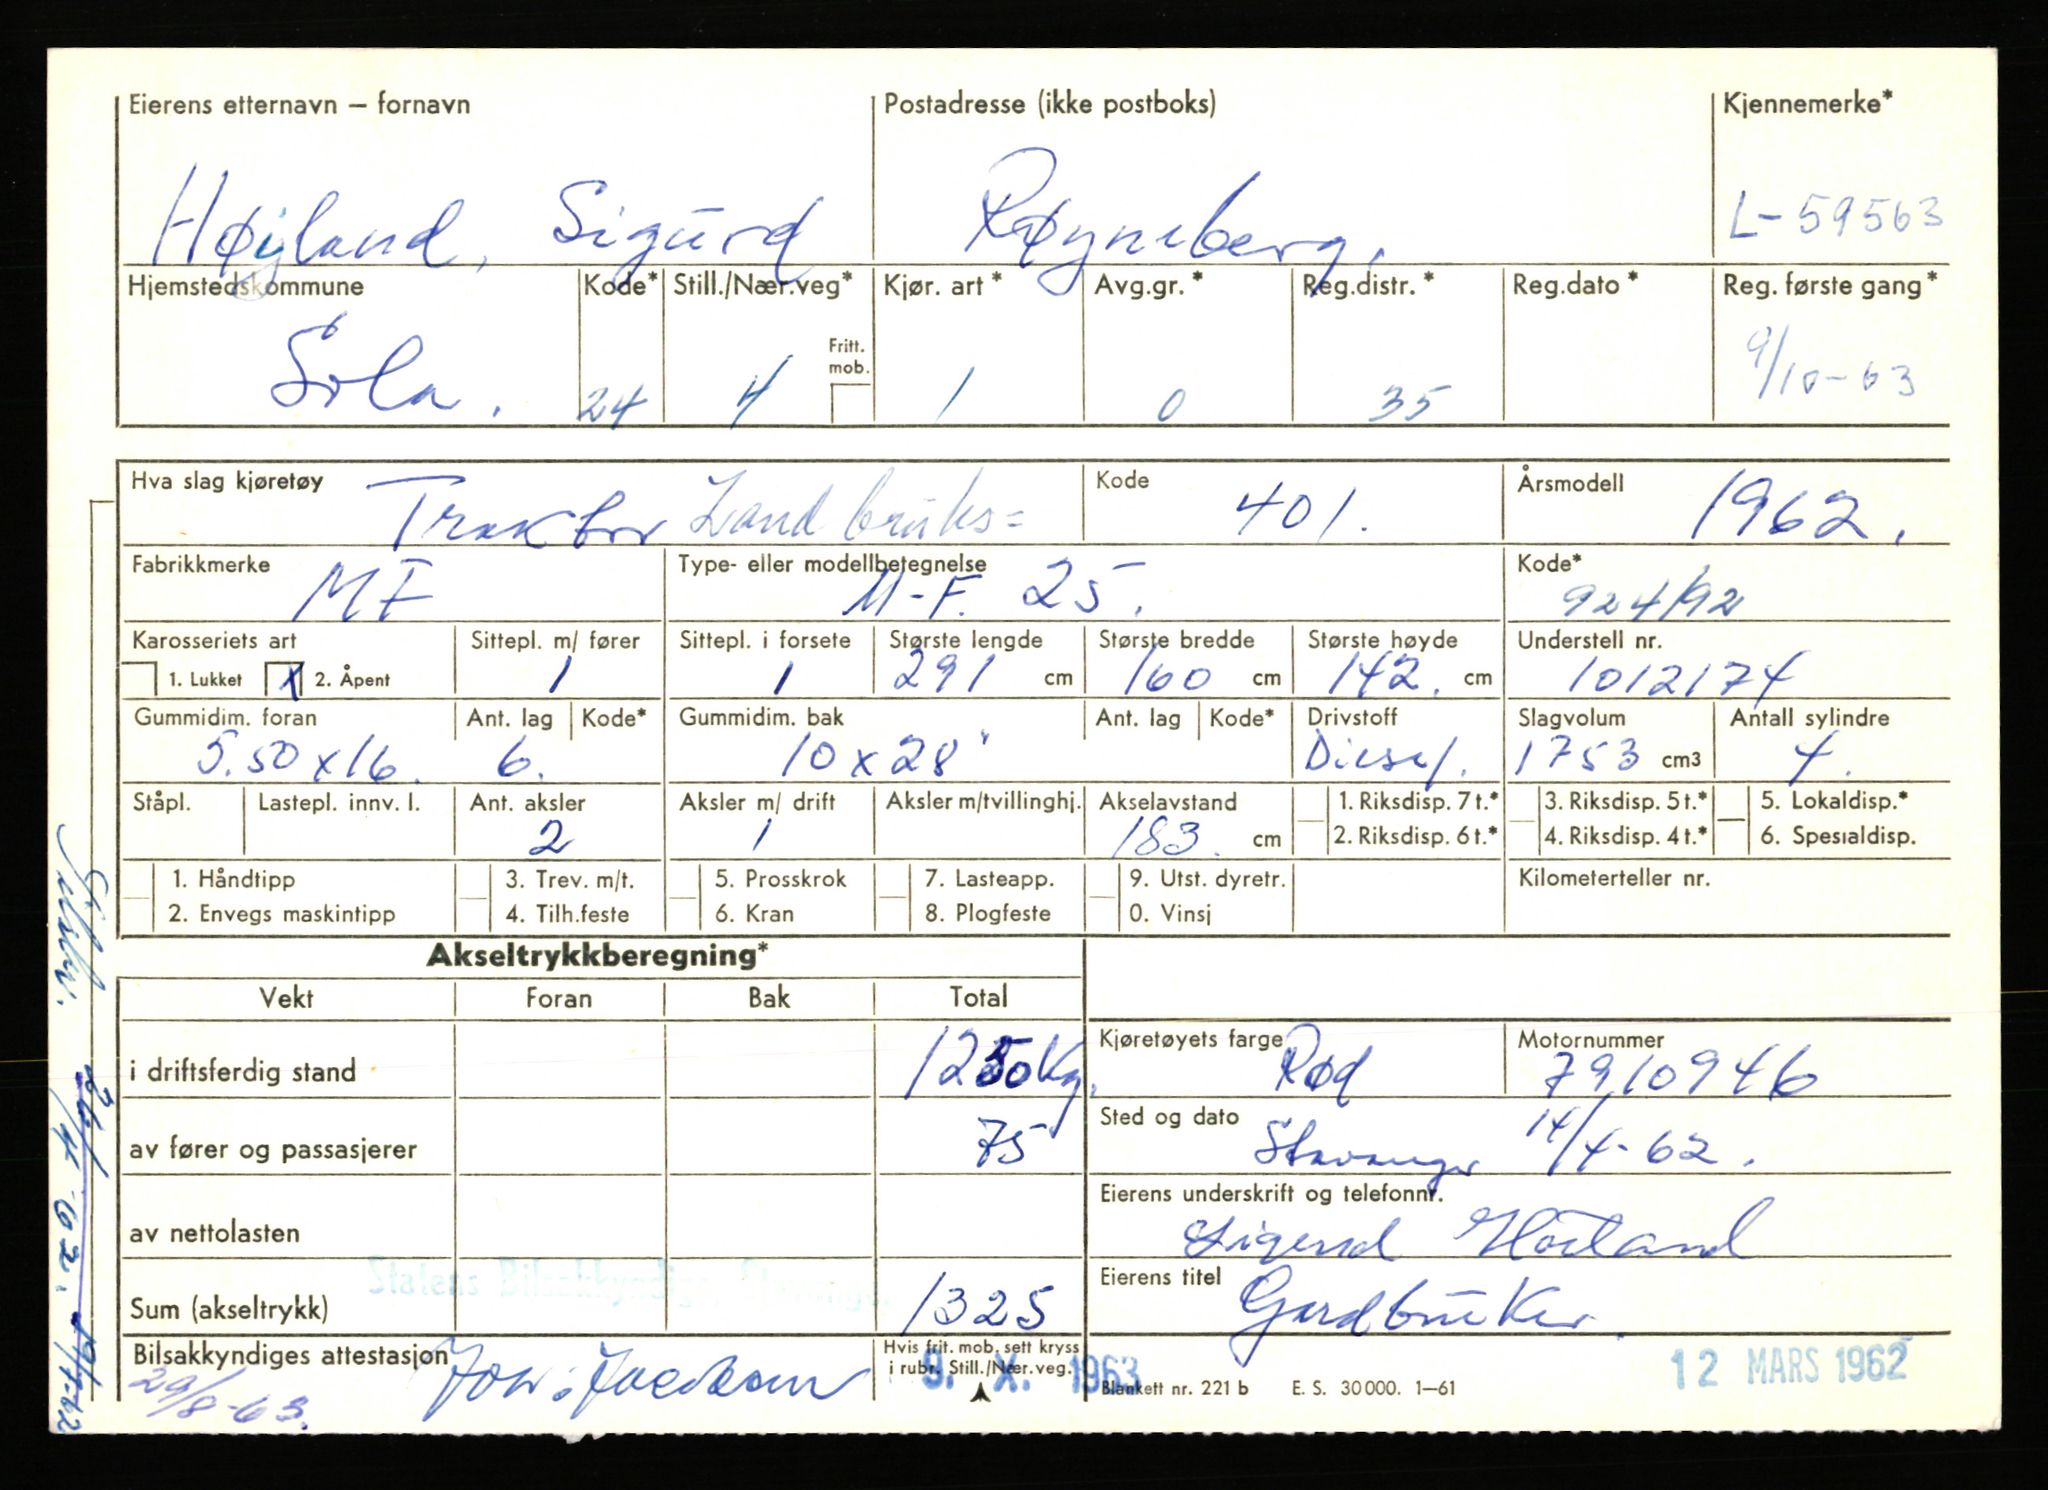 Eierens etternavn – fornavn Postadresse (ikke postboks) Kjennemerke*
Høyland, Sigurd Røyneberg. L-59563
Hjemstedskommune Kode* Still./Nær.veg* Kjør. art* Avg.gr.* Reg.distr.* Reg.dato* Reg. første gang*
Fritt. mob.
Sola. 24 4 1 0 35 9/10-63
Hva slag kjøretøy Traktor Landbruks= Kode 401. Årsmodell 1962.
Fabrikkmerke Type- eller modellbetegnelse Kode*
MF M-F. 25. 924/92
Karosseriets art Sittepl. m/ fører Sittepl. i forsete Største lengde Største bredde Største høyde Understell nr.
1. Lukket X 2. Åpent 1 1 291 cm 160 cm 142. cm 1012174
Gummidim. foran Ant. lag Kode* Gummidim. bak Ant. lag Kode* Drivstoff Slagvolum Antall sylindre
5.50 x 16. 6. 10 x 28" Diesel. 1753 cm3 4.
Ståpl. Lastepl. innv. l. Ant. aksler Aksler m/ drift Aksler m/tvillinghj. Akselavstand 1. Riksdisp. 7 t.* 3. Riksdisp. 5 t.* 5. Lokaldisp.*
2 1 183. cm 2. Riksdisp. 6 t.* 4. Riksdisp. 4 t.* 6. Spesialdisp.
1. Håndtipp 3. Trev. m/t. 5. Prosskrok 7. Lasteapp. 9. Utst. dyretr. Kilometerteller nr.
2. Envegs maskintipp 4. Tilh.feste 6. Kran 8. Plogfeste 0. Vinsj
Akseltrykkberegning*
Vekt Foran Bak Total
i driftsferdig stand 1250 Kg.
av fører og passasjerer 75
av nettolasten
Statens Bilsakkyndige, Stavanger
Sum (akseltrykk) 1325
Bilsakkyndiges attestasjon
29/8-63.
Hvis frit. mob. sett kryss
i rubr. Still./Nær.veg.
9. X. 1963
Kjøretøyets farge Rød Motornummer 7910946
Sted og dato Stavanger 14/4-62.
Eierens underskrift og telefonnr.
Sigurd Høiland
Eierens titel Gardbruker.
12 MARS 1962
Blankett nr. 221 b E. S. 30000. 1-61
26/4-62.